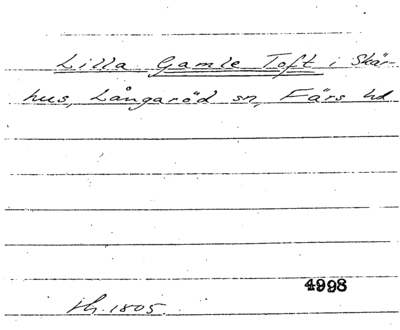 Lilla Gamle Toft i Skär-
hus, Långaröd sn, Färs hd
4998
Hg. 1805.